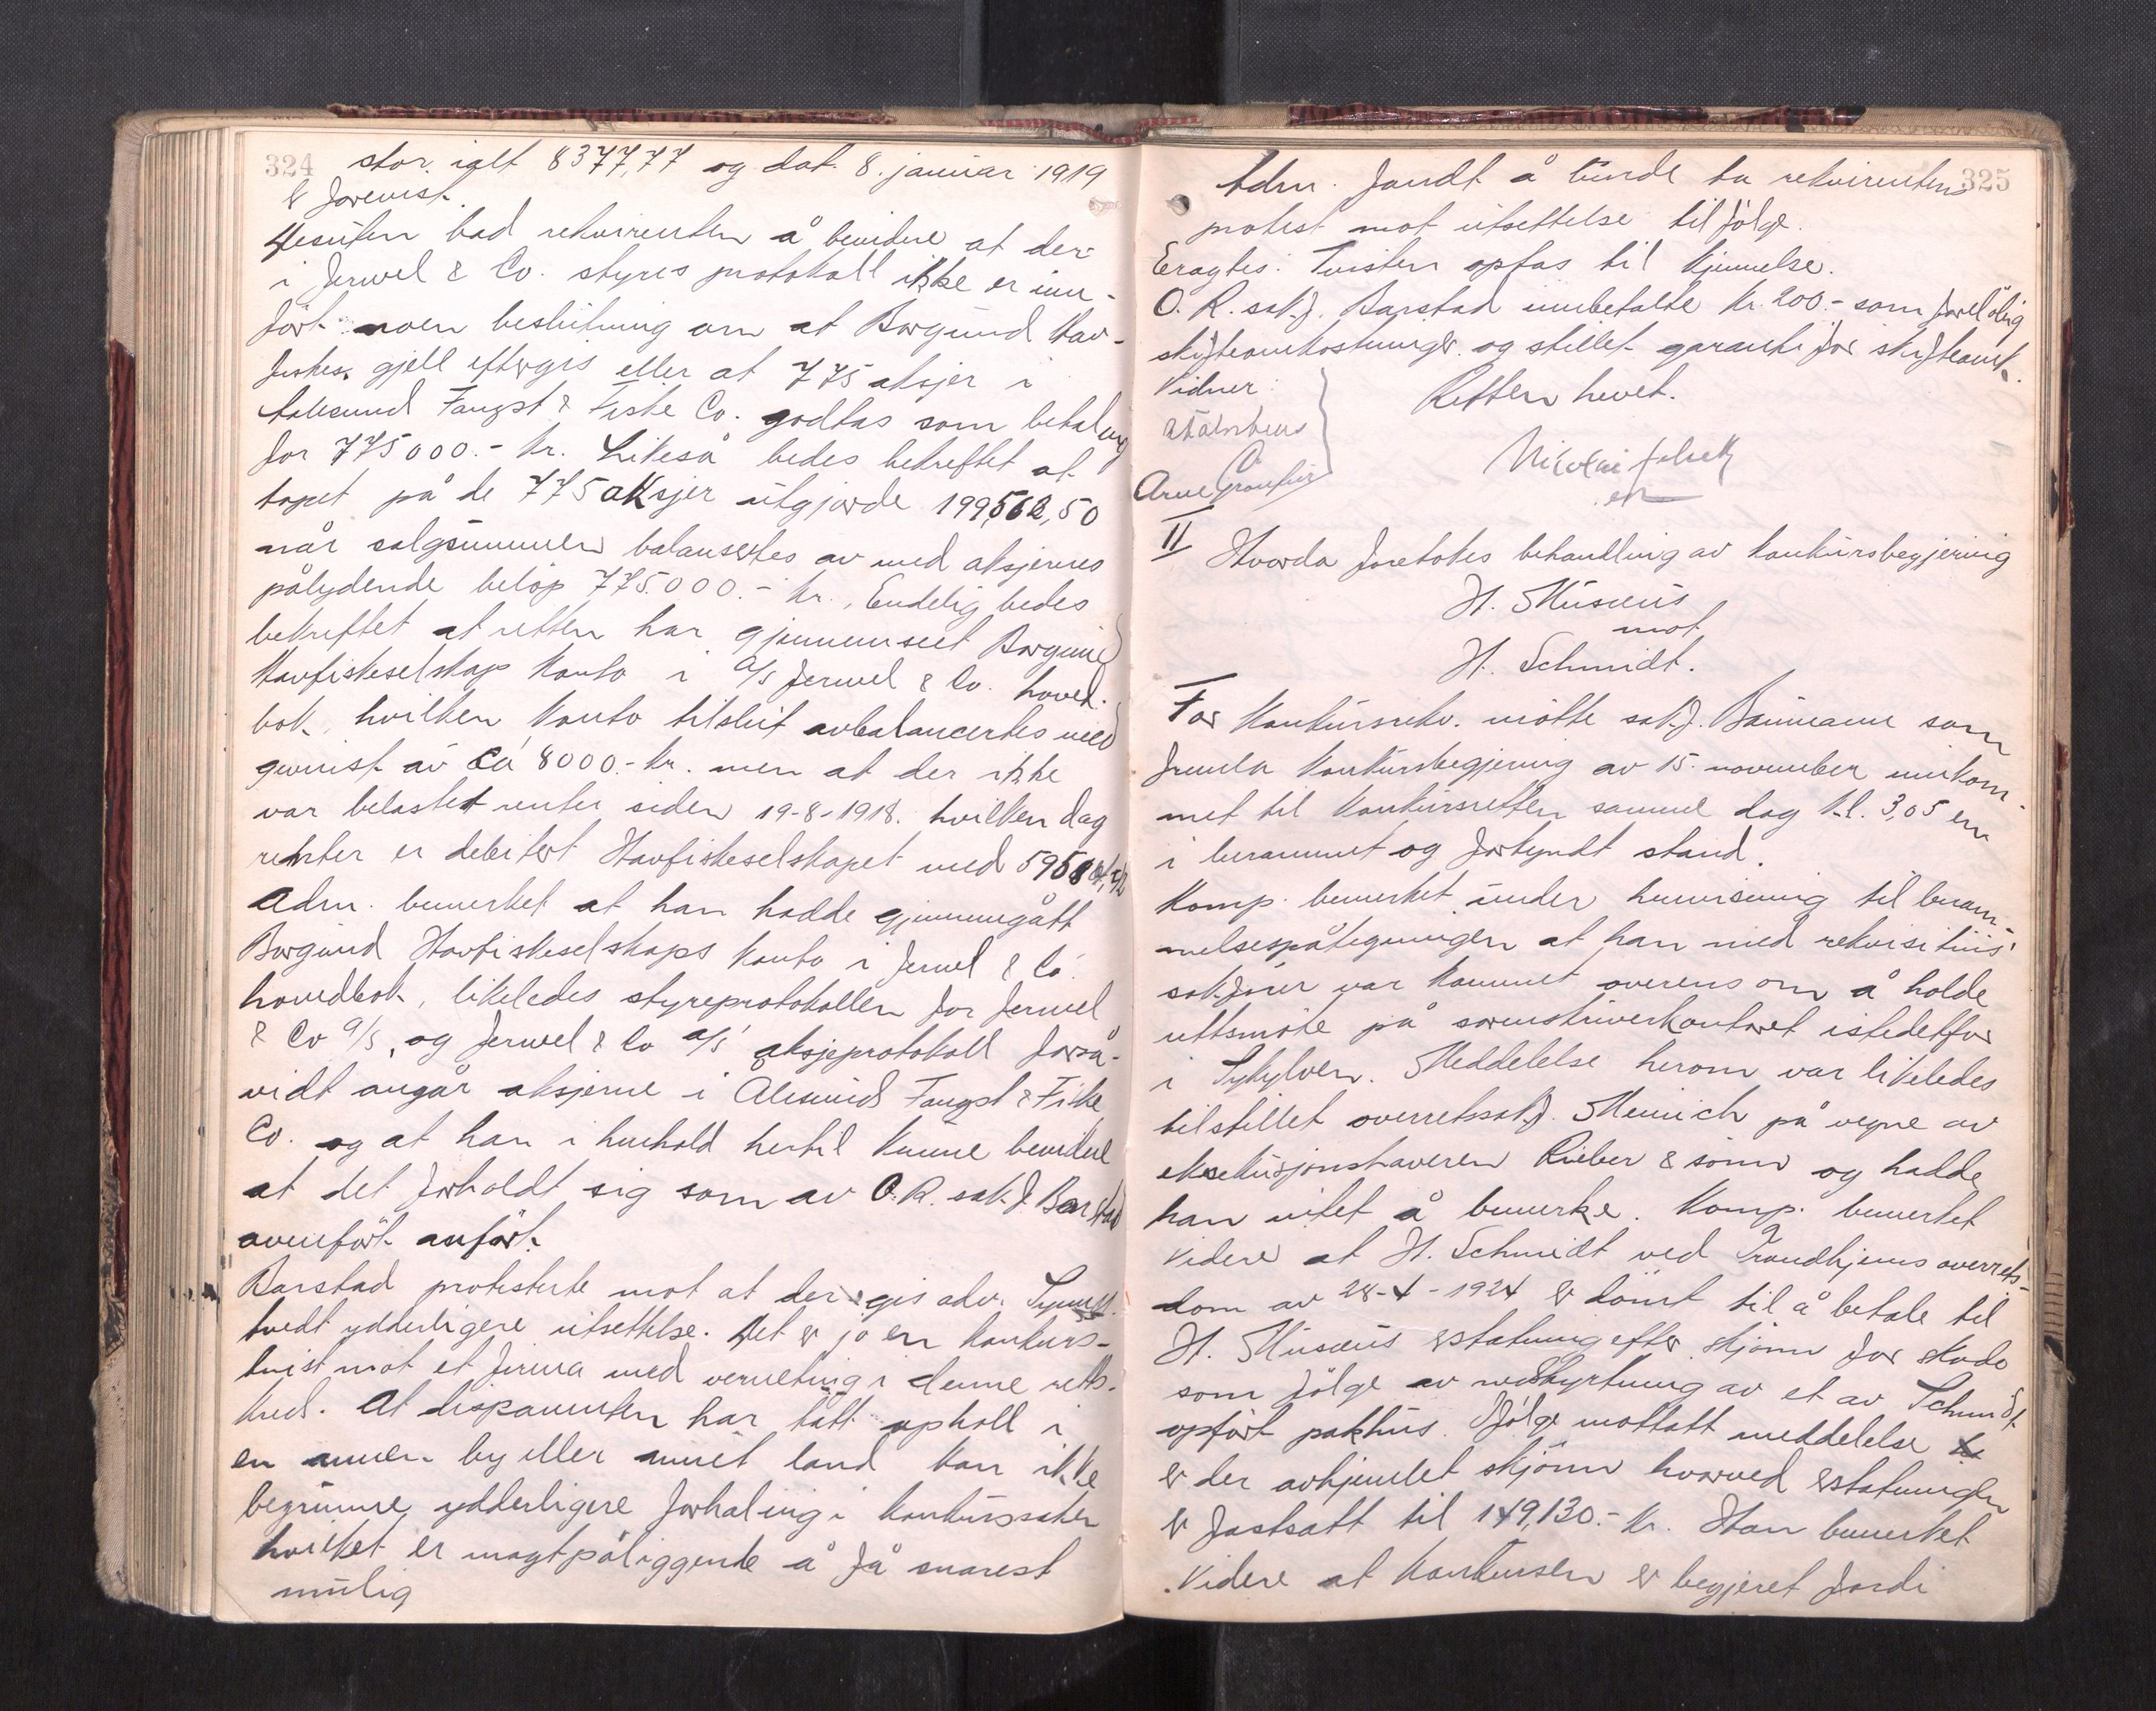 324
stor. ialt 8377,77 og dat. 8. januar 1919
er forevist.
Desuten bad rekvirenten å bevidne at der
i Jervel & Co. styres protokoll ikke er inn-
ført noen beslutning om at Borgund Hav-
fiskes. gjell eftergis eller at 775 aksjer i
Aalesund Fangst & Fiske Co. godtas som betaling
for 775000.- kr. Likeså bedes bekreftet at
tapet på de 775 aksjer utgjorde 199,562,50
når salgsummen balansertes av med aksjenes
pålydende beløp 775.000.- kr., Endelig bedes
bekreftet at retten har gjennemseet Borgund
Havfiskeselskap konto i A/S Jervel & Co. hoved-
bok, hvilken konto tilslut avbalancertes med
gevinst av ca 8000.- kr. men at der ikke
var belastet renter siden 19-8-1918. hvilken dag
renter er debitert Havfiskeselskapet med
Adm. bemerket at han hadde gjennemgått
Borgund Havfiskeselskaps konto i Jervel & Co.
hovedbok, likeledes styreprotokollen for Jervel
& Co A/S, og Jervel & Co A/S aksjeprotokoll forså-
vidt angår aksjerne i Ålesunds Fangst & Fiske
Co. og at han i henhold hertil kunne bevidne
at det forholdt sig som av O.R. sakf. Barstad
ovenfört anfört.
Barstad protesterte mot at der gis adv.
tvedt ydderligere utsettelse. Det er jo en konkurs-
tvist mot et firma med verneting i denne retts-
kred. At disponenten har tatt ophold i
en annen by eller annet land kan ikke
begrunne ydderligere forhaling i konkurssaken
hvilket er magtpåliggende å få snarest
mulig
325
Adm. fandt å burde ta rekvirentens
protest mot utsettelse tilfölge.
Eragtes: Tvisten optas til kjennelse.
O.R. sakf. Barstad innbetalte kr. 200.- som forelöbig
skifteomkostninger og stillet garanti for skifteomk.
Vidner: Retten hevet.
Arne
II
Hvorda foretokes behandling av konkursbegjering
H. Musæus
mot
H. Schmidt.
For Konkursrekv. mötte sakf. Baumann som
fremla konkursbegjering av 15. november innkom-
met til konkursretten samme dag kl. 3,05 em
i berammet og forkyndt stand.
Komp. bemerket under henvisning til beram-
melsespåtegningen at han med rekvisitus'
sakförer var kommet overens om å holde
rettsmöte på sorenskriverkontoret istedetfor
i Sykylven. Meddelelse herom var likeledes
tilstillet overretssakf. Meinich på vegne av
eksekusjonshaveren Rieber & sönn og hadde
han intet å bemerke. Komp. bemerket
videre at H. Schmidt ved Trondhjems overrets-
dom av 28-4-1924 er dömt til å betale til
H. Musæus erstatning efter skjönn for skade
som fölge av nedstyrtning av et av Schmidt
opfört pakhus. Ifölge mottatt meddelelse
er der avhjemlet skjönn hvorved erstatningen
er fastsatt til 149,130.- kr. Han bemerket
videre at konkursen er begjeret fordi